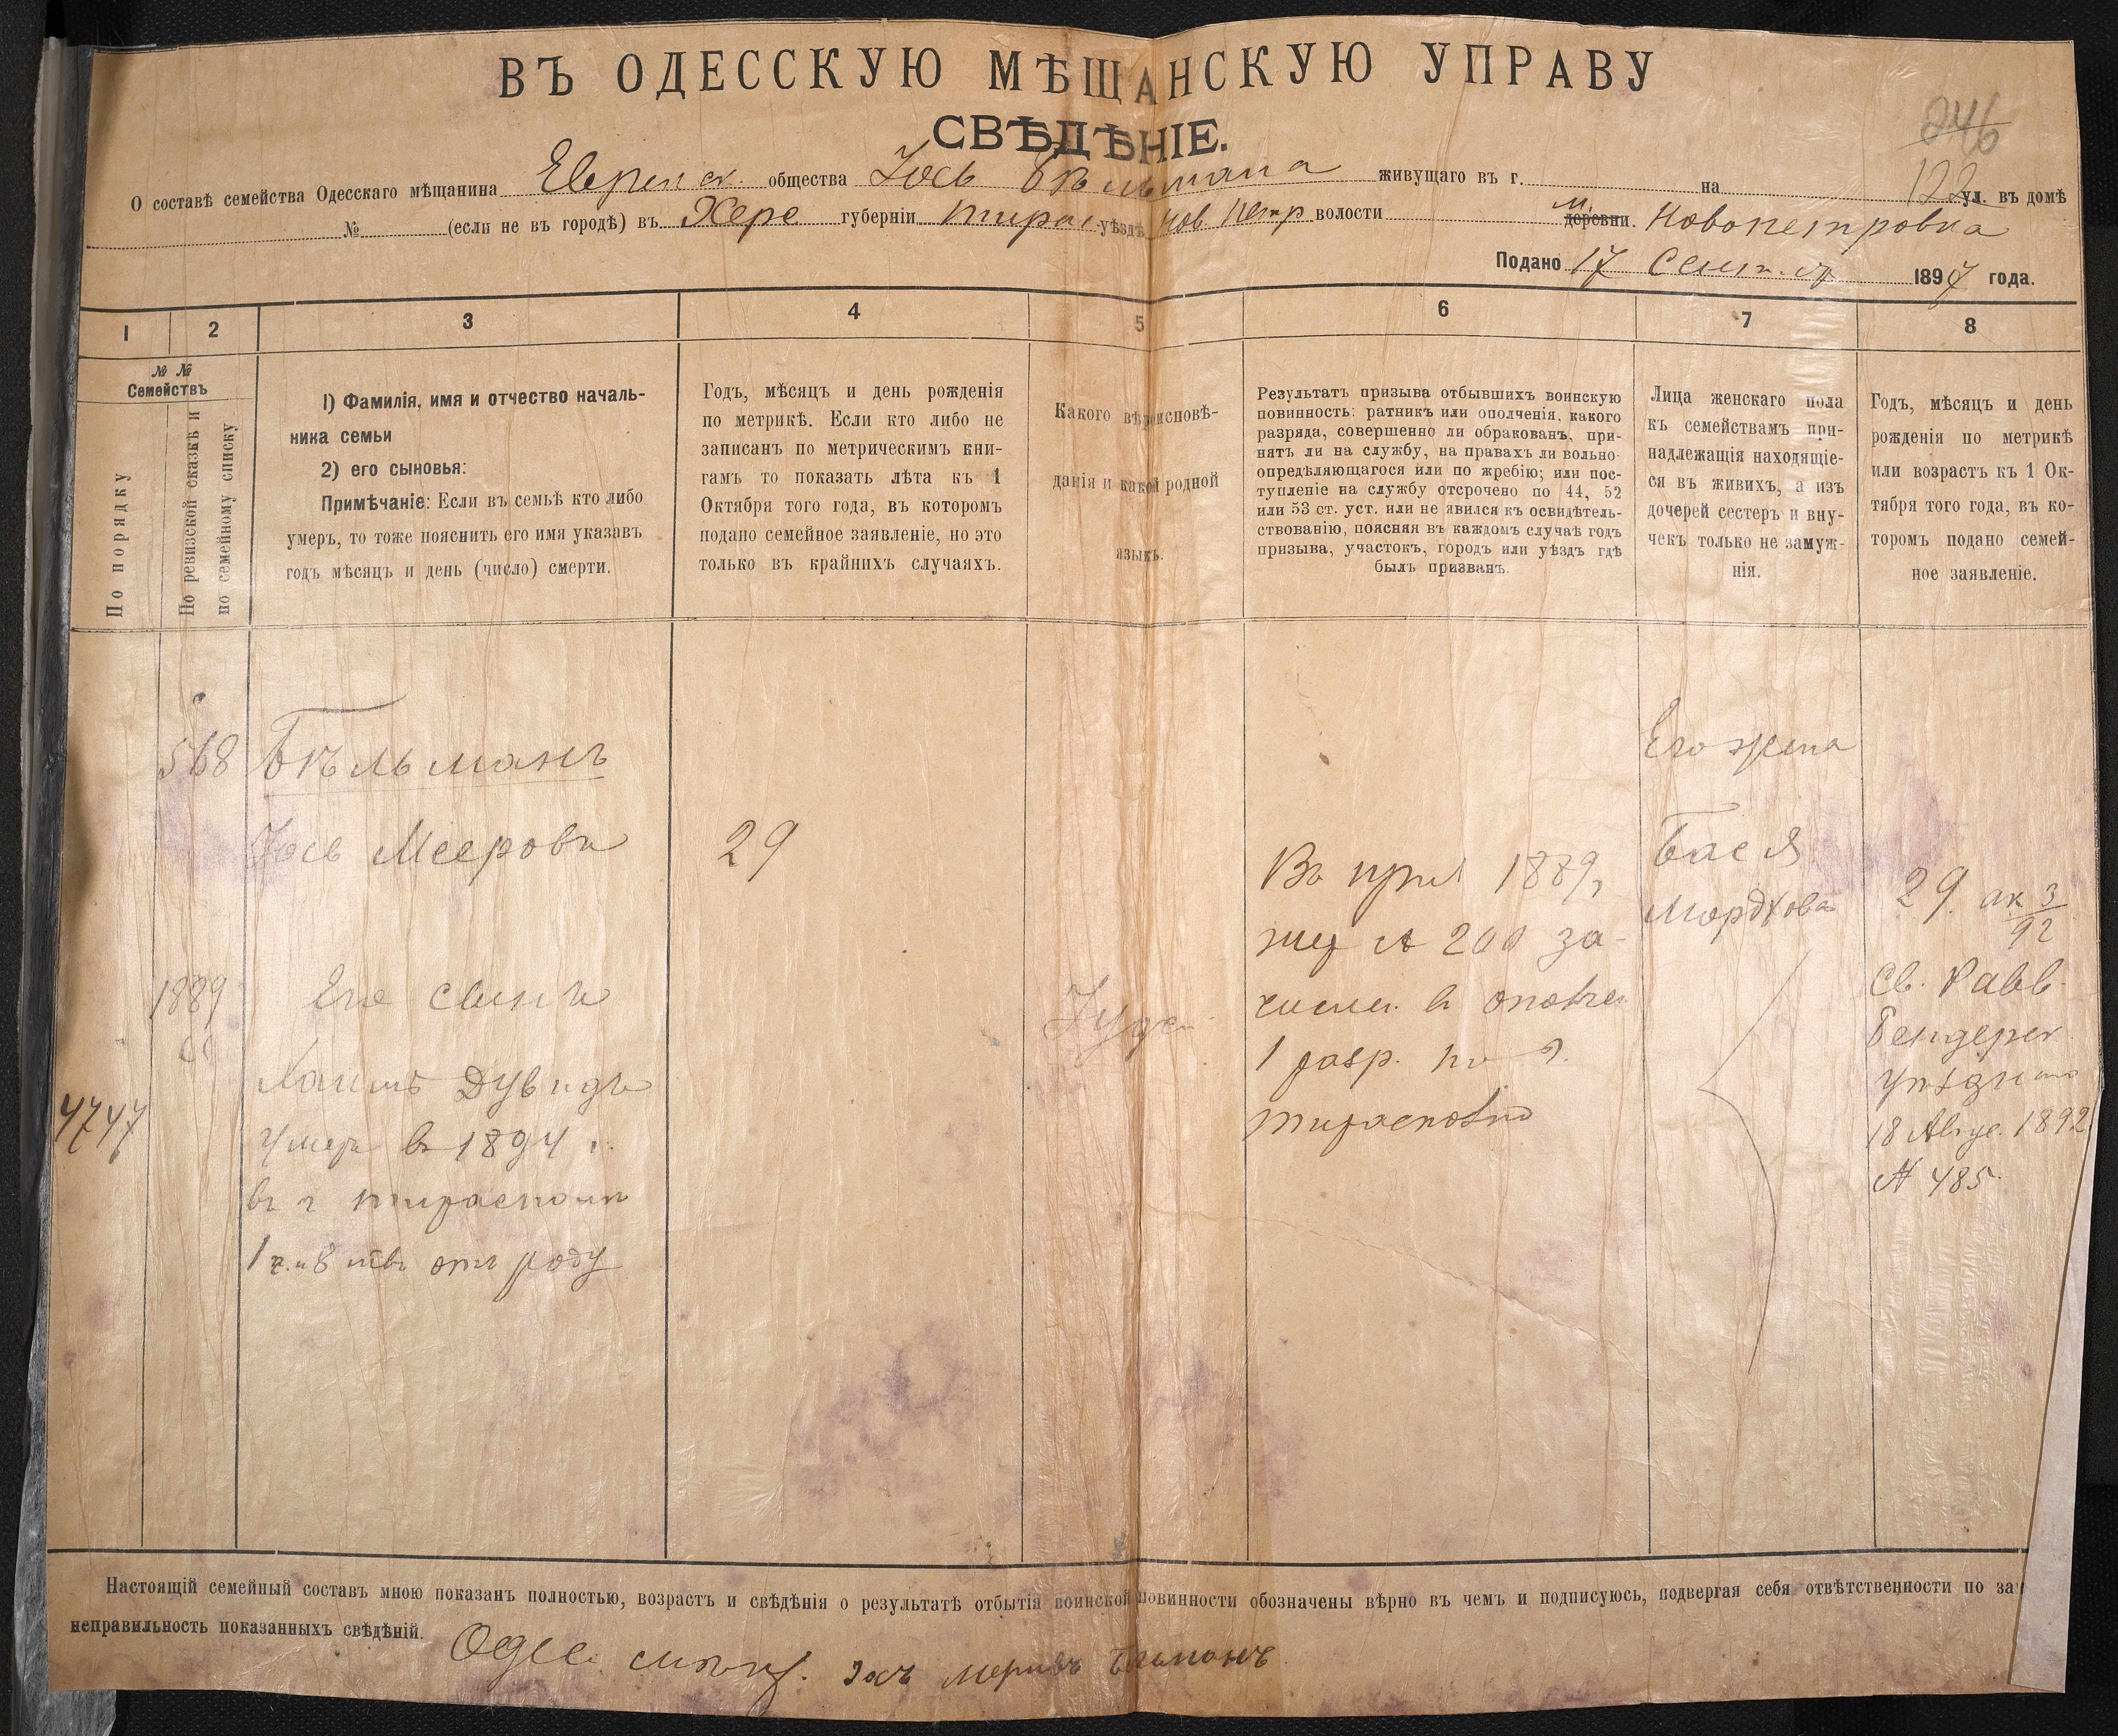 ВЪ ОДЕССКУЮ МѢЩАНСКУЮ УПРАВУ
СВѢДѢНІЕ.
246
122
О составѣ семейства Одесскаго мѣщанина Еврейск. общества Іось Бѣльмана живущаго въ г. на ул. въ домѣ
№ (если не въ городѣ) въ Херс губерніи тирас уѣздѣ Нов Петр волости м. деревни. Новопетровка
Подано 17 Сент. 1897 года.
1 2 3 4 5 6 7 8
№ № Семействъ
По порядку
По ревизской сказкѣ и по семейному списку
I) Фамилія, имя и отчество началь-
ника семьи
2) его сыновья:
Примѣчаніе: Если въ семьѣ кто либо
умеръ, то тоже пояснить его имя указавъ
годъ мѣсяцъ и день (число) смерти.
Годъ, мѣсяцъ и день рожденія
по метрикѣ. Если кто либо не
записанъ по метрическимъ кни-
гамъ то показать лѣта къ 1
Октября того года, въ которомъ
подано семейное заявленіе, но это
только въ крайнихъ случаяхъ.
Какого вѣроисповѣ-
данія и какой родной
языкъ.
Результатъ призыва отбывшихъ воинскую
повинность: ратникъ или ополченія, какого
разряда, совершенно ли обракованъ, при-
нятъ ли на службу, на правахъ ли вольно-
опредѣляющагося или по жребію; или пос-
тупленіе на службу отсрочено по 44, 52
или 53 ст. уст. или не явился къ освидѣтель-
ствованію, поясняя въ каждомъ случаѣ годъ
призыва, участокъ, городъ или уѣздъ гдѣ
былъ призванъ.
Лица женскаго пола
къ семействамъ при-
надлежащія находящіе-
ся въ живихъ, а изъ
дочерей сестеръ и вну-
чекъ только не замуж-
нія.
Годъ, мѣсяцъ и день
рожденія по метрикѣ
или возрастъ къ 1 Ок-
тября того года, въ ко-
торомъ подано семей-
ное заявленіе.
568
Бѣльманъ
Іось Меерови
29
1889
Его сынъ
Хаимъ Дувидъ
умеръ въ 1894 г.
въ г тирасполи
1 г. и 8 от роду
4747
Іуде
Въ 1889,
№ 200 за-
числ. в ополчен
1 разр. по г.
тирасполю
Его жена
Бася
Мордкова
29. ак 3/92
Св. Равв.
Бендерск
18 Авгус. 1892
№ 485.
Настоящій семейный составъ мною показанъ полностью, возрастъ и свѣдѣнія о результатѣ отбытія воинской повинности обозначены вѣрно въ чемъ и подписуюсь, подвергая себя отвѣтственности по за
неправильность показанныхъ свѣдѣній.
Одес. Іось Меровъ Бельманъ